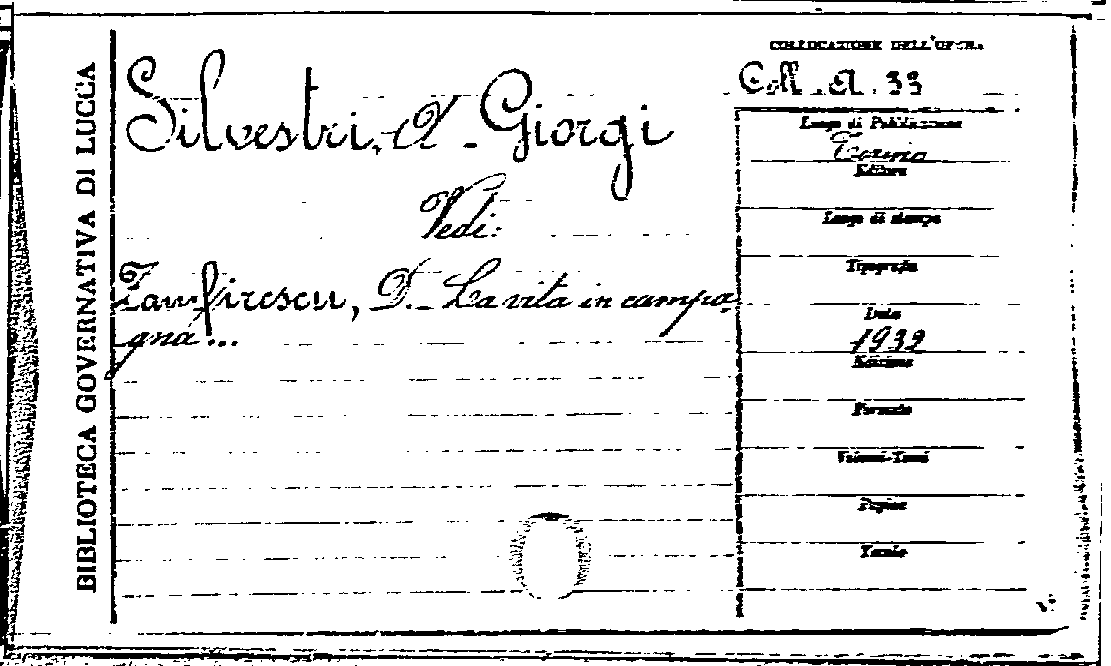 BIBLIOTECA GOVERNATIVA DI LUCCA
Silvestri-A - Giorgi
Vedi:
Zamfirescu, D. - La vita in campa-
gna...
COLLOCAZIONE DELL'OPERA
Coll. A. 33
Luogo di Pubblicazione
Torino
Editore
Luogo di stampa
Tipografia
Data
1932
Edizione
Formato
Volumi-Tomi
Pagine